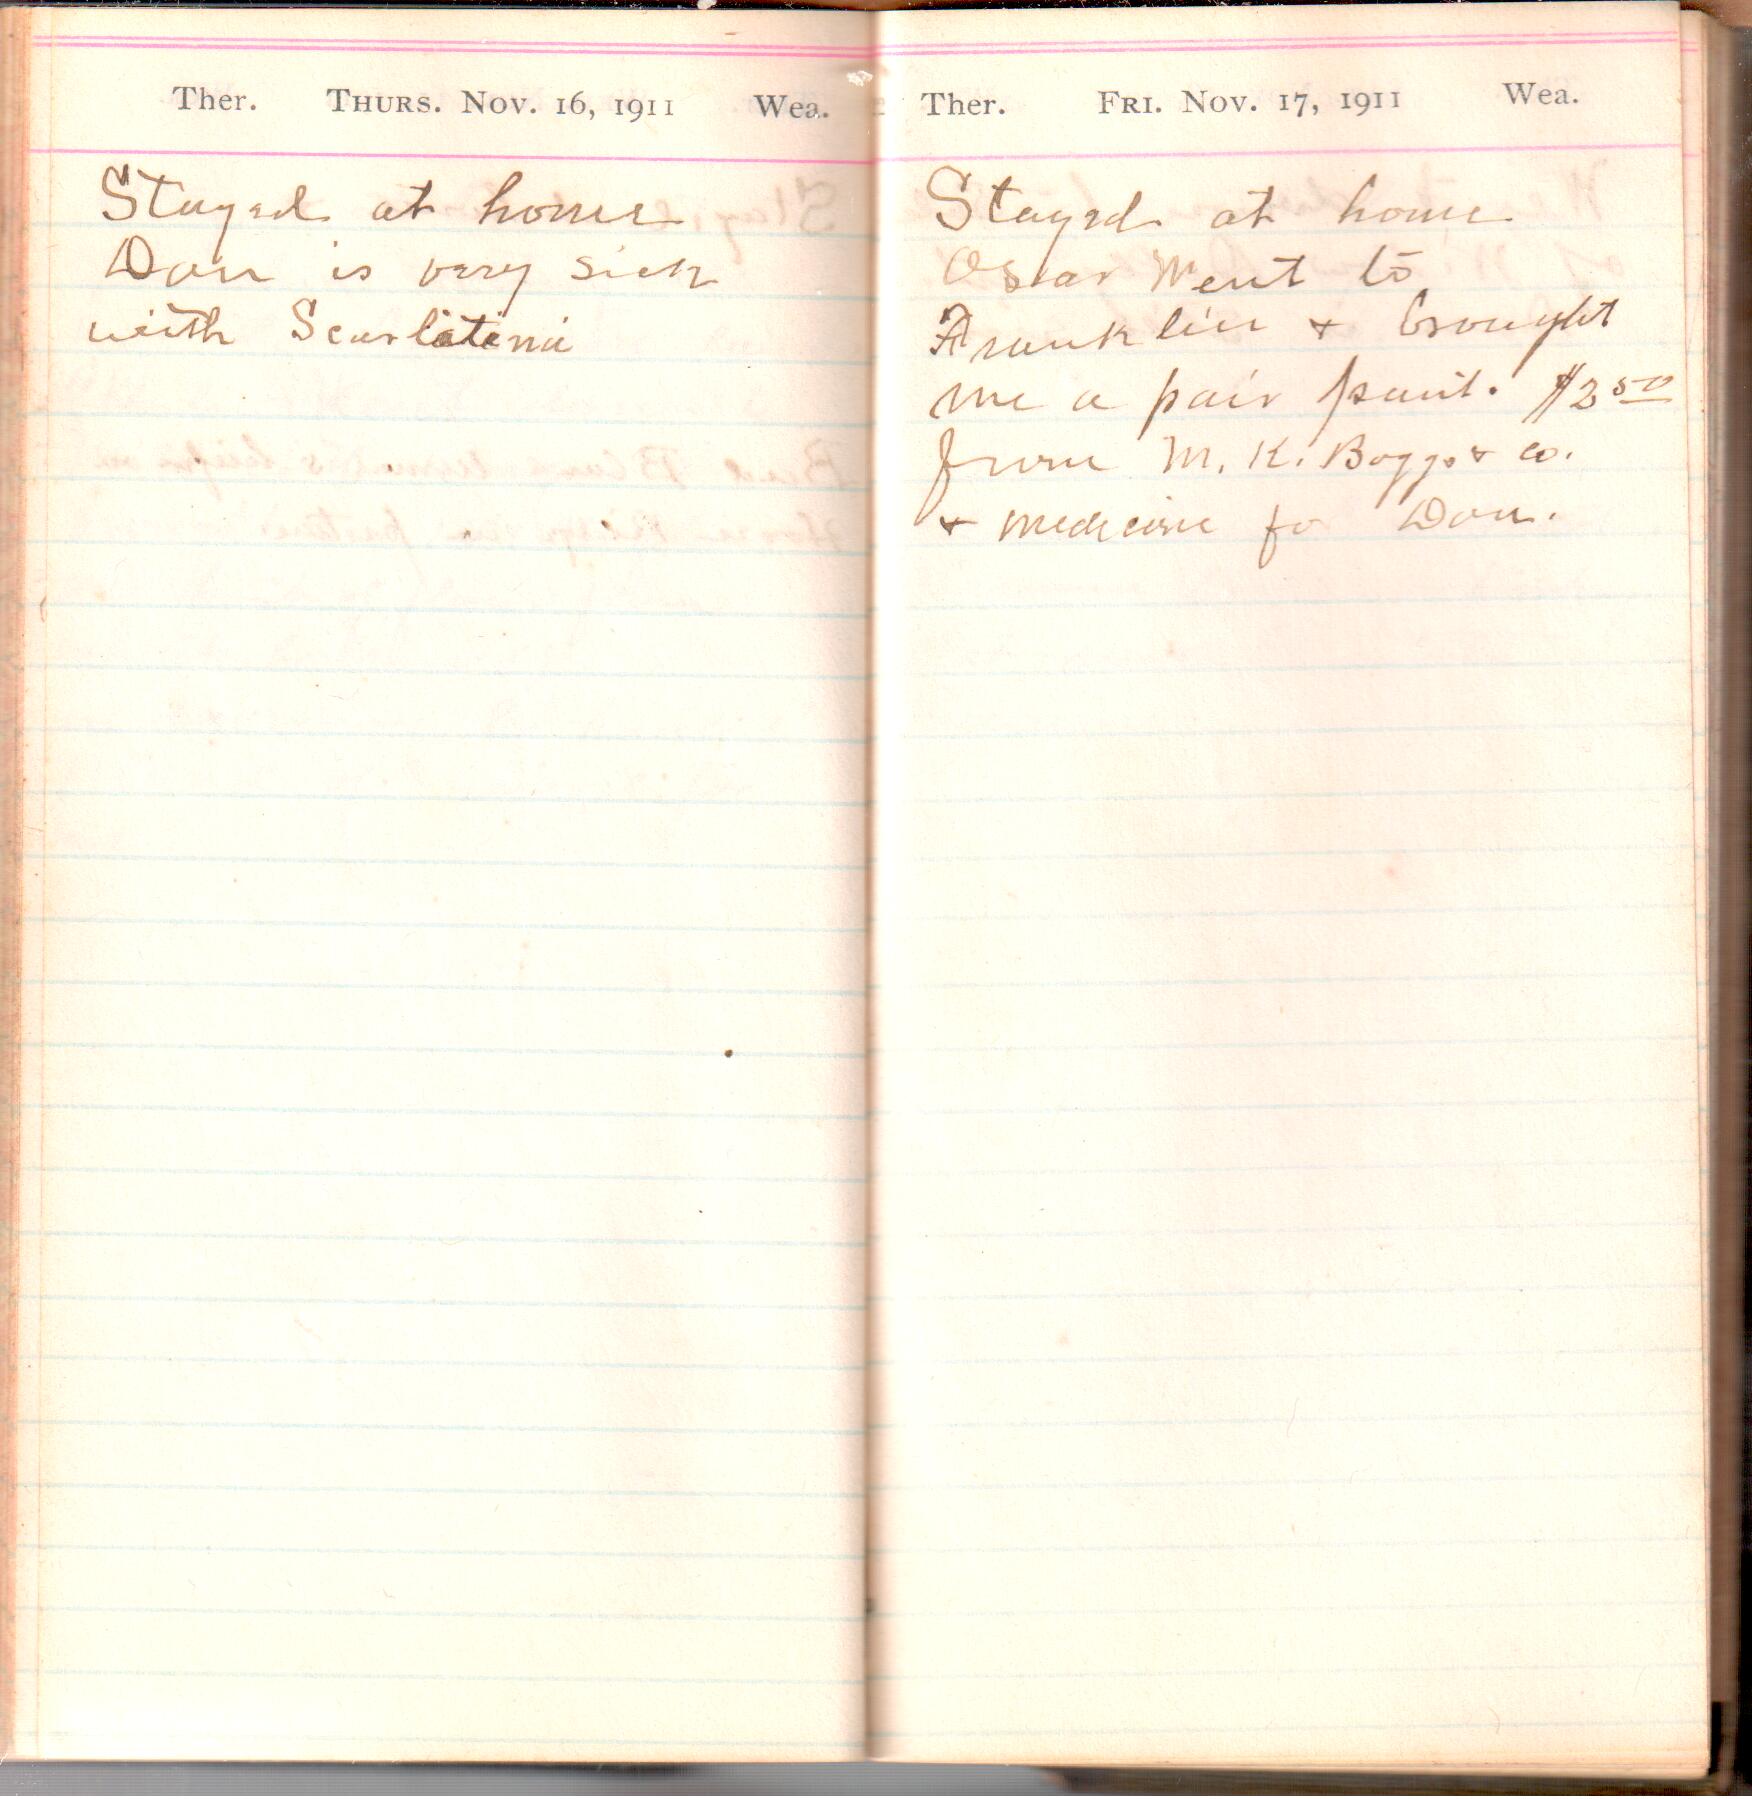 Ther. THURS. NOV. 16, 1911 Wea.
Stayed at home
Don is very sick
with Scarlatina
Ther. FRI. NOV. 17, 1911 Wea.
Stayed at home
Oscar Went to
Franklin + brought
me a pair pant. $2 50
from M. K. Boggs + co.
+ medicine fo Don.